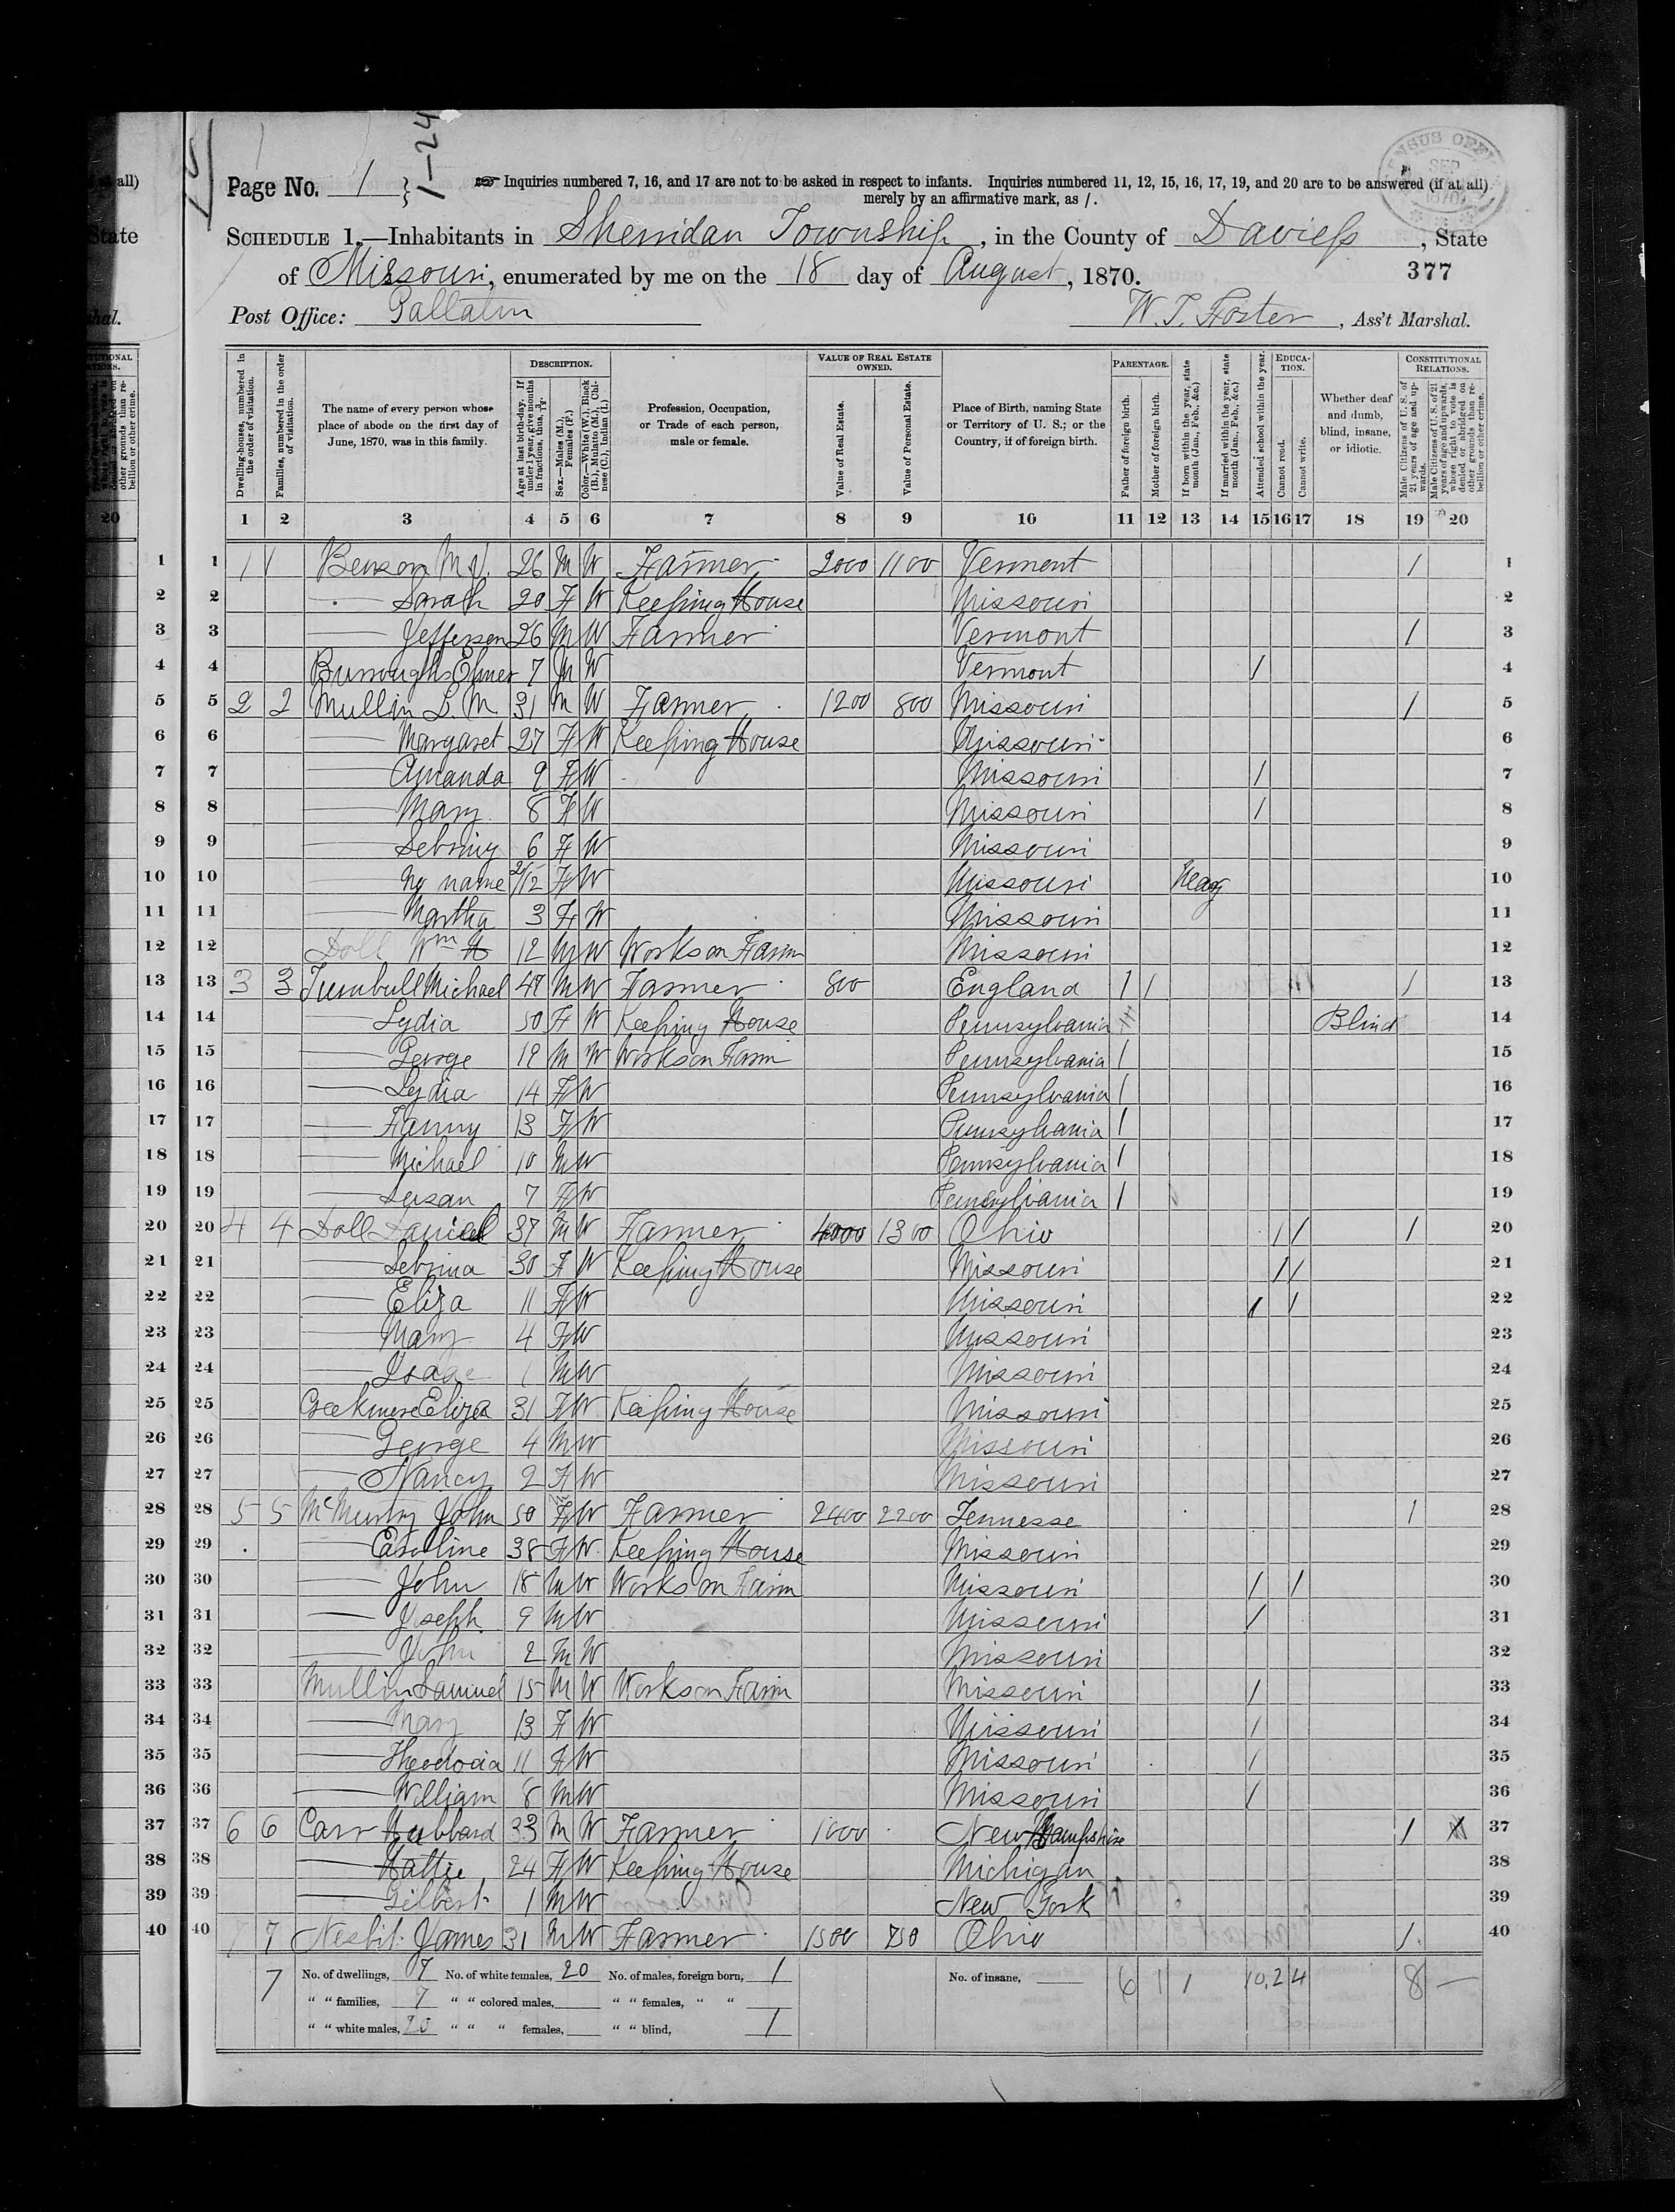 Page No. 1 } 1-24
Inquiries numbered 7, 16, and 17 are not to be asked in respect to infants. Inquiries numbered 11, 12, 15, 16, 17, 19, and 20 are to be answered (if at all)
merely by an affirmative mark, as /.
SCHEDULE 1.—Inhabitants in Sherridan Township, in the County of Daviess, State
of Missouri, enumerated by me on the 18 day of August, 1870.
377
Post Office: Gallatin
W. T. Foster, Ass't Marshal.
Dwelling-houses, numbered in the order of visitation.
Families, numbered in the order of visitation.
The name of every person whose place of abode on the first day of June, 1870, was in this family.
DESCRIPTION.
Age at last birth-day. If under 1 year, give months in fractions, thus, 3/12.
Sex.—Males (M.), Females (F.)
Color.—White (W.), Black (B.), Mulatto (M.), Chinese (C.), Indian (I.)
Profession, Occupation, or Trade of each person, male or female.
VALUE OF REAL ESTATE OWNED.
Value of Real Estate.
Value of Personal Estate.
Place of Birth, naming State or Territory of U. S.; or the Country, if of foreign birth.
PARENTAGE.
Father of foreign birth.
Mother of foreign birth.
If born within the year, state month (Jan., Feb., &c.)
If married within the year, state month (Jan., Feb., &c.)
Attended school within the year.
EDUCATION.
Cannot read.
Cannot write.
Whether deaf and dumb, blind, insane, or idiotic.
CONSTITUTIONAL RELATIONS.
Male Citizens of U. S. of 21 years of age and upwards.
Male Citizens of U. S. of 21 years of age and upwards, whose right to vote is denied or abridged on other grounds than rebellion or other crime.
1 2 3 4 5 6 7 8 9 10 11 12 13 14 15 16 17 18 19 20
1 1 1 Benson M V. 26 M W Farmer 2000 1100 Vermont / 1
2 — Sarah 20 F W Keeping House Missouri 2
3 — Jefferson 26 M W Farmer Vermont / 3
4 Burroughs Elmer 7 M W Vermont / 4
5 2 2 Mullin S. M. 31 M W Farmer 1200 800 Missouri / 5
6 — Margaret 27 F W Keeping House Missouri 6
7 — Amanda 9 F W Missouri / 7
8 — Mary 8 F W Missouri / 8
9 — Sebriny 6 F W Missouri 9
10 — No name 2/12 F W Missouri 10
11 — Martha 3 F W Missouri 11
12 Doll Wm H 12 M W Works on Farm Missouri 12
13 3 3 Turnbull Michael 47 M W Farmer 800 England / / / 13
14 — Lydia 50 F W Keeping House Pennsylvania Blind 14
15 — George 19 M W Works on Farm Pennsylvania / 15
16 — Lydia 14 F W Pennsylvania / 16
17 — Fanny 13 F W Pennsylvania / 17
18 — Michael 10 M W Pennsylvania / 18
19 — Susan 7 F W Pennsylvania / 19
20 4 4 Doll Daniel 37 M W Farmer 4000 1300 Ohio / / / 20
21 — Sebrina 30 F W Keeping House Missouri / / 21
22 — Eliza 11 F W Missouri / / 22
23 — Mary 4 F W Missouri 23
24 — Isaac 1 M W Missouri 24
25 Creekmore Eliza 31 F W Keeping House Missouri 25
26 — George 4 M W Missouri 26
27 — Nancy 2 F W Missouri 27
28 5 5 McMurtry John 50 F W Farmer 2400 2200 Tennesse / 28
29 — Caroline 38 F W Keeping House Missouri 29
30 — John 18 M W Works on Farm Missouri / / 30
31 — Joseph 9 M W Missouri / 31
32 — John 2 M W Missouri 32
33 Mullin Samuel 15 M W Works on Farm Missouri / 33
34 — Mary 13 F W Missouri / 34
35 — Theodocia 11 F W Missouri / 35
36 — William 8 M W Missouri / 36
37 6 6 Carr Hubbard 33 M W Farmer 1000 New Hampshire / 37
38 — Hattie 24 F W Keeping House Michigan 38
39 — Gilbert 1 M W New York 39
40 7 7 Nesbit James 31 M W Farmer 1500 750 Ohio / 40
7 No. of dwellings, 7 No. of white females, 20 No. of males, foreign born, 1 No. of insane, 6 1 1 10 2 4 8 —
" " families, 7 " " colored males, " " females, " "
" " white males, 20 " " " females, " " blind, 1